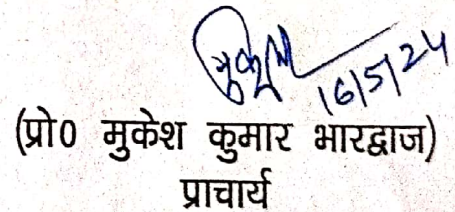 16/5/24
(प्रो0 मुकेश कुमार भारद्वाज)
प्राचार्य